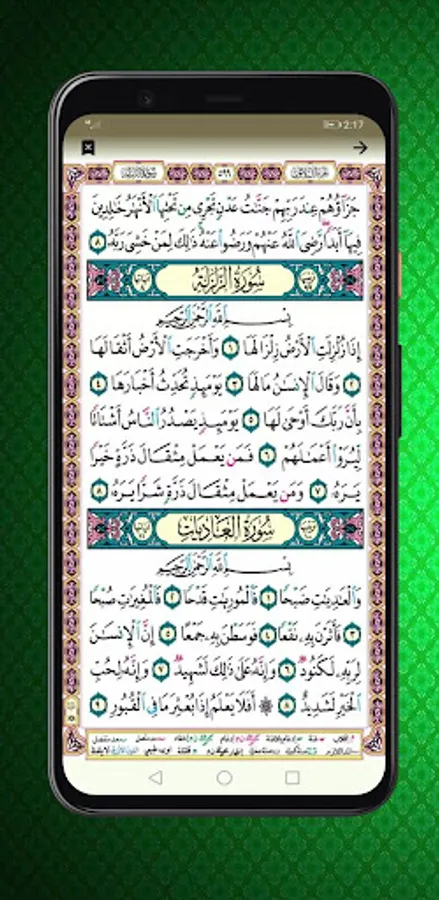 2:17
سورة الزلزلة ٥٩٩ الجزء الثلاثون
جَزَاؤُهُمْ عِندَ رَبِّهِمْ جَنَّٰتُ عَدْنٍ تَجْرِى مِن تَحْتِهَا ٱلْأَنْهَٰرُ خَٰلِدِينَ
فِيهَآ أَبَدًا رَّضِىَ ٱللَّهُ عَنْهُمْ وَرَضُوا۟ عَنْهُ ذَٰلِكَ لِمَنْ خَشِىَ رَبَّهُۥ ٨
سُورَةُ الزَّلْزَلَةِ
بِسْمِ ٱللَّهِ ٱلرَّحْمَٰنِ ٱلرَّحِيمِ
إِذَا زُلْزِلَتِ ٱلْأَرْضُ زِلْزَالَهَا ١ وَأَخْرَجَتِ ٱلْأَرْضُ أَثْقَالَهَا
٢ وَقَالَ ٱلْإِنسَٰنُ مَا لَهَا ٣ يَوْمَئِذٍ تُحَدِّثُ أَخْبَارَهَا ٤
بِأَنَّ رَبَّكَ أَوْحَىٰ لَهَا ٥ يَوْمَئِذٍ يَصْدُرُ ٱلنَّاسُ أَشْتَاتًا
لِّيُرَوْا۟ أَعْمَٰلَهُمْ ٦ فَمَن يَعْمَلْ مِثْقَالَ ذَرَّةٍ خَيْرًا
يَرَهُۥ ٧ وَمَن يَعْمَلْ مِثْقَالَ ذَرَّةٍ شَرًّا يَرَهُۥ ٨
سُورَةُ العَادِيَاتِ
بِسْمِ ٱللَّهِ ٱلرَّحْمَٰنِ ٱلرَّحِيمِ
وَٱلْعَٰدِيَٰتِ ضَبْحًا ١ فَٱلْمُورِيَٰتِ قَدْحًا ٢ فَٱلْمُغِيرَٰتِ صُبْحًا
٣ فَأَثَرْنَ بِهِۦ نَقْعًا ٤ فَوَسَطْنَ بِهِۦ جَمْعًا ٥ إِنَّ ٱلْإِنسَٰنَ
لِرَبِّهِۦ لَكَنُودٌ ٦ وَإِنَّهُۥ عَلَىٰ ذَٰلِكَ لَشَهِيدٌ ٧ وَإِنَّهُۥ لِحُبِّ
ٱلْخَيْرِ لَشَدِيدٌ ٨ ۞ أَفَلَا يَعْلَمُ إِذَا بُعْثِرَ مَا فِى ٱلْقُبُورِ ٩